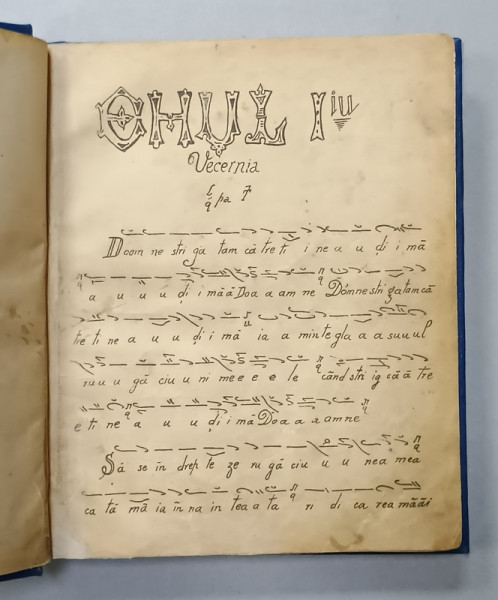 EHUL Iiu
Vecernia
pa
Doom ne stri ga tam că tre ti i ne a u u ḑi i mă
a u u u u ḑi i mă ă Doa a am ne Dómne stri ga tam că
tre ti ne a u u u ḑi i mă ia a min te gla a a su u ul
ru u u gă ciu u ni me e e e le când stri ig că ă ă tre
e ti ne a u u u ḑi i mă Doa a a am ne
Să se în drep te ze ru gă ciu u u nea mea
ca tă mă ia în na in tea a ta ri di ca rea mă ă i